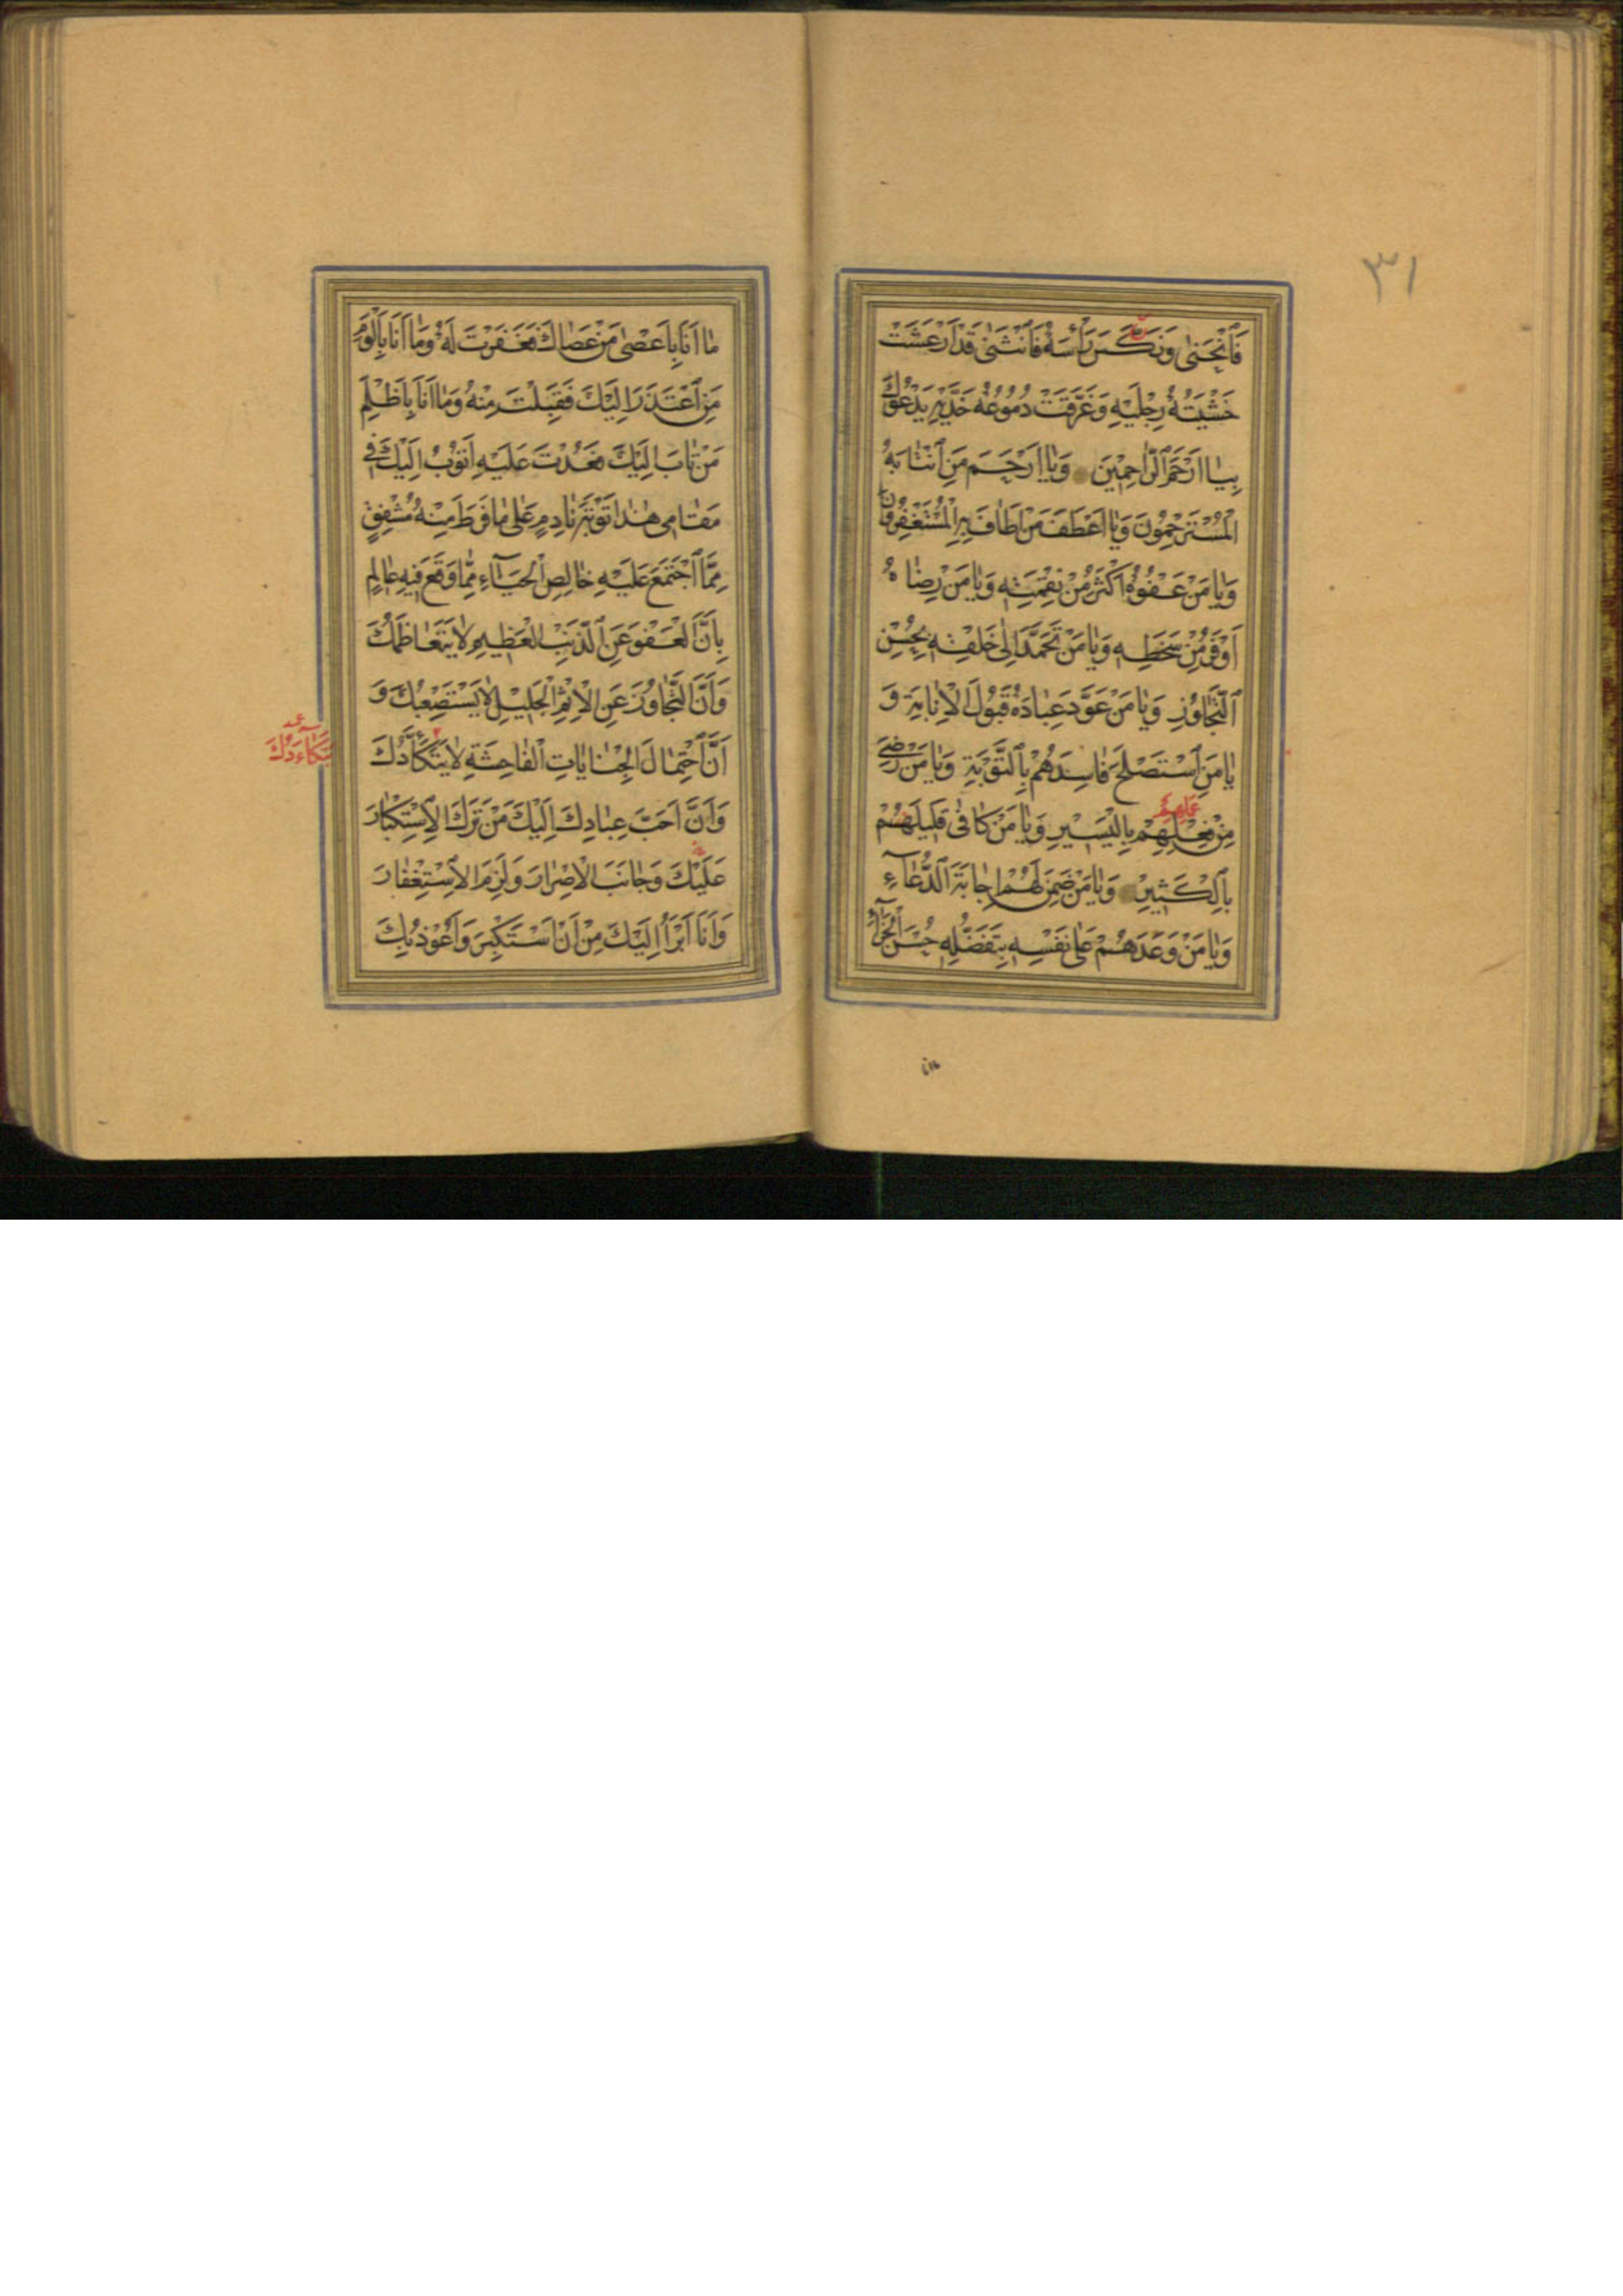 ۳۱
فَٱنْحَنٰى وَنَكَّسَ رَأْسَهُ فَٱنْثَنٰى قَدْ اَرْعَشَتْ
خَشْيَتُهُ رِجْلَيْهِ وَغَرَّقَتْ دُمُوعُهُ خَدَّيْهِ يَدْعُوكَ
بِيٰا اَرْحَمَ ٱلرّٰاحِمِيْنَ وَيٰا اَرْحَمَ مَنِ ٱنْتٰابَهُ
الْمُسْتَرْحِمُونَ وَيٰا اَعْطَفَ مَنْ اَطٰافَ بِهِ الْمُسْتَغْفِرُونَ
وَيٰا مَنْ عَفْوُهُ اَكْثَرُ مِنْ نِقْمَتِهِ وَيٰا مَنْ رِضٰاهُ
اَوْفَرُ مِنْ سَخَطِهِ وَيٰا مَنْ تَحَمَّدَ اِلٰى خَلْقِهِ بِحُسْنِ
ٱلتَّجٰاوُزِ وَيٰا مَنْ عَوَّدَ عِبٰادَهُ قَبُولَ الْاِنٰابَةِ وَ
يٰا مَنِ ٱسْتَصْلَحَ فٰاسِدَهُمْ بِٱلتَّوْبَةِ وَيٰا مَنْ رَضِيَ
عَمَلِهِمْ
مِنْ فِعْلِهِمْ بِالْيَسِيرِ وَيٰا مَنْ كٰافٰى قَلِيلَهُمْ
بِٱلْكَثِيرِ وَيٰا مَنْ ضَمِنَ لَهُمْ اِجٰابَةَ ٱلدُّعٰآءِ
وَيٰا مَنْ وَعَدَهُمْ عَلٰى نَفْسِهِ بِتَفَضُّلِهِ حُسْنَ ٱلْجَزٰآءِ
مٰا
مٰا اَنَا بِاَعْصٰى مَنْ عَصٰاكَ فَغَفَرْتَ لَهُ وَمٰا اَنَا بِاَلْوَمِ
مَنِ ٱعْتَذَرَ اِلَيْكَ فَقَبِلْتَ مِنْهُ وَمٰا اَنَا بِاَظْلَمِ
مَنْ تٰابَ اِلَيْكَ فَعُدْتَ عَلَيْهِ اَتُوبُ اِلَيْكَ فِي
مَقٰامِي هٰذٰا تَوْبَةَ نٰادِمٍ عَلٰى مٰا فَرَطَ مِنْهُ مُشْفِقٍ
مِمَّا ٱجْتَمَعَ عَلَيْهِ خٰالِصِ ٱلْحَيٰآءِ مِمّٰا وَقَعَ فِيهِ عٰالِمٍ
بِاَنَّ ٱلْعَفْوَ عَنِ ٱلذَّنْبِ الْعَظِيمِ لٰا يَتَعٰاظَمُكَ
وَاَنَّ التَّجٰاوُزَ عَنِ الْاِثْمِ الْجَلِيْلِ لٰا يَسْتَصْعِبُكَ وَ
اَنَّ ٱحْتِمٰالَ الْجِنٰايٰاتِ ٱلْفٰاحِشَةِ لٰا يَتَكَأَّدُكَ
يَتَكٰاءَدُكَ
وَاَنَّ اَحَبَّ عِبٰادِكَ اِلَيْكَ مَنْ تَرَكَ الْاِسْتِكْبٰارَ
عَلَيْكَ وَجٰانَبَ الْاِصْرٰارَ وَلَزِمَ الْاِسْتِغْفٰارَ
وَاَنَا اَبْرَأُ اِلَيْكَ مِنْ اَنْ اَسْتَكْبِرَ وَاَعُوذُ بِكَ